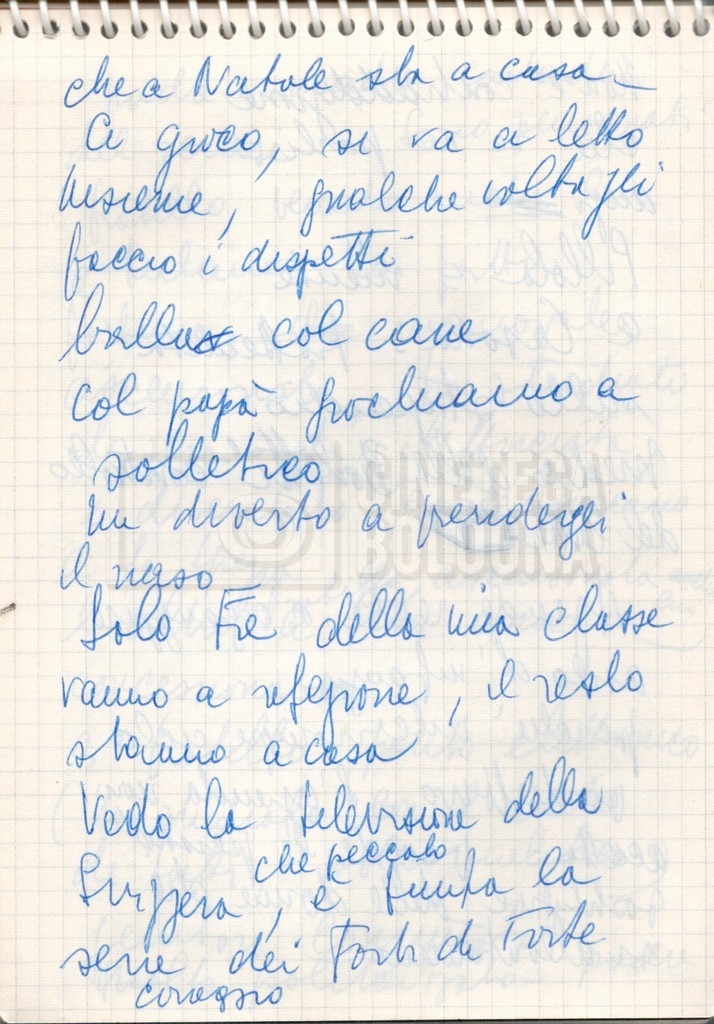 che a Natale sta a casa
Ci gioco, si va a letto
insieme, qualche volta gli
faccio i dispetti
ballo col cane
Col papà giochiamo a
solletico
mi diverto a prendergli
il naso
Solo Tre della mia classe
vanno a refezione, il resto
stanno a casa
Vedo la televisione della
che peccato
Svizzera, è finita la
serie dei Forti di Forte
coraggio
CINETECA
BOLOGNA